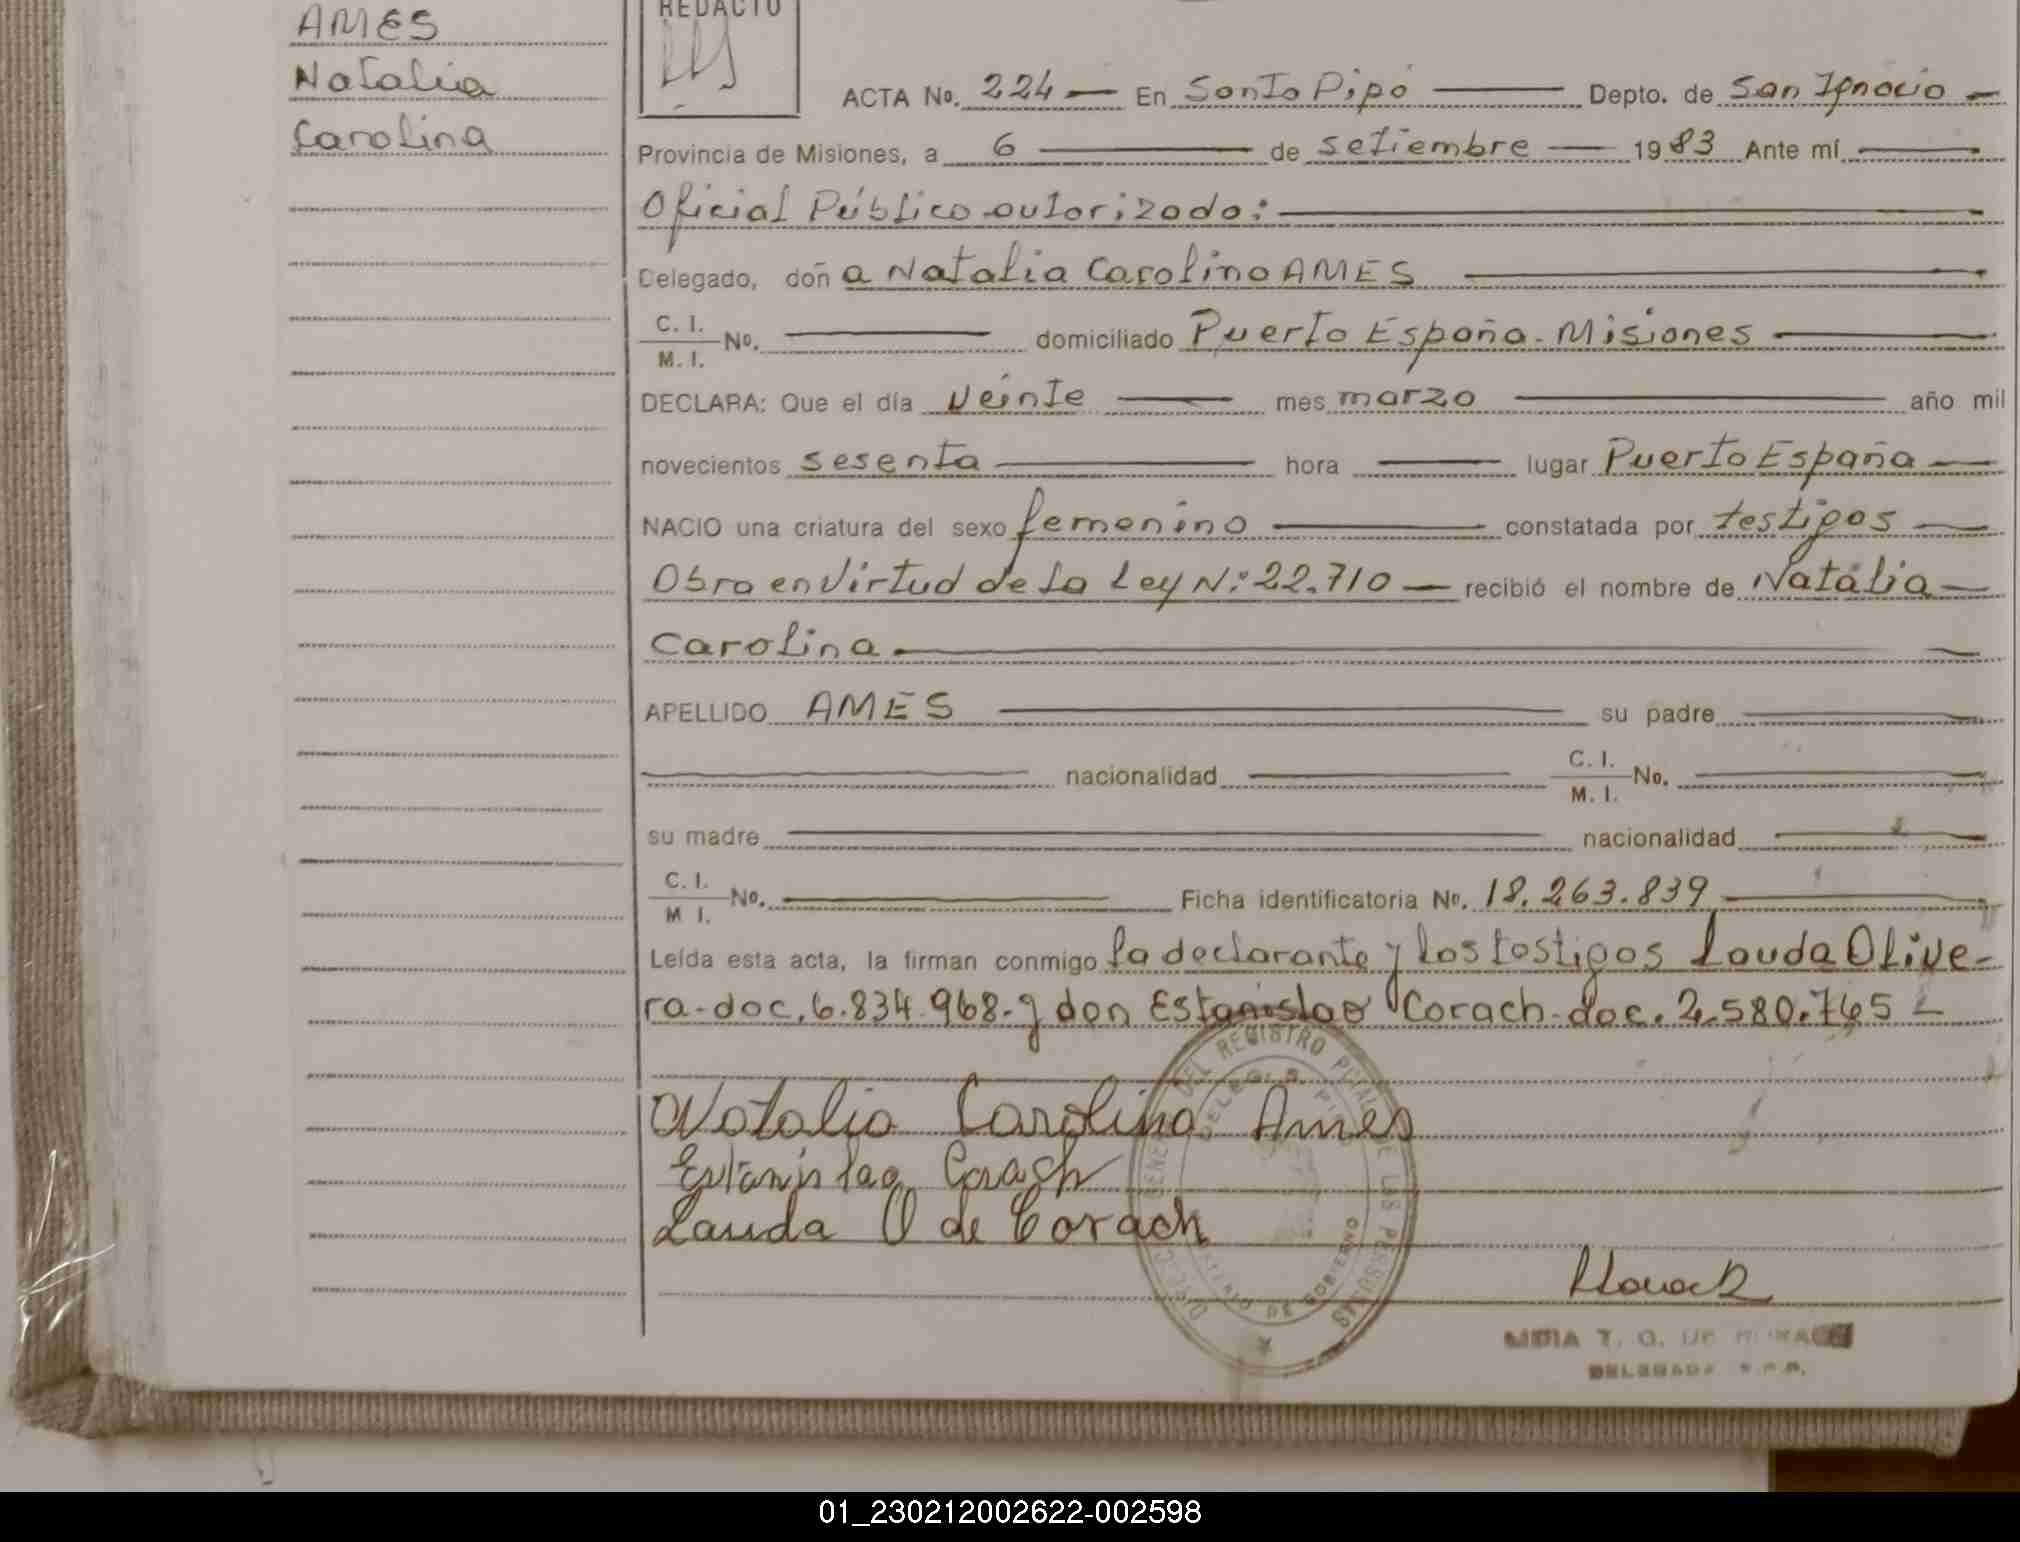 AMES
Natalia
Carolina
REDACTO
ACTA No. 224 — En Santo Pipó — Depto. de San Ignacio —
Provincia de Misiones, a 6 — de setiembre — 1983 Ante mí —
Oficial Público autorizado: —
Delegado, doña Natalia Carolina AMES —
C. I.
M. I. No. — domiciliado Puerto España - Misiones —
DECLARA: Que el día veinte — mes marzo — año mil
novecientos sesenta — hora — lugar Puerto España —
NACIO una criatura del sexo femenino — constatada por testigos —
Obra en Virtud de la Ley N:º 22.710 — recibió el nombre de Natalia —
Carolina —
APELLIDO AMES — su padre —
— nacionalidad — C. I.
M. I. No. —
su madre — nacionalidad —
C. I.
M I. No. — Ficha identificatoria No. 18.263.839 —
Leída esta acta, la firman conmigo la declarante y los testigos Lauda Olive-
ra - doc. 6.834.968 - y don Estanislao Corach - doc. 2.580.765 —
Natalia Carolina Ames
Estanislao Corach
Lauda O de Corach
DEL REGISTRO DE LAS PERSONAS
DE GOBIERNO
DELEGADA
01_230212002622-002598